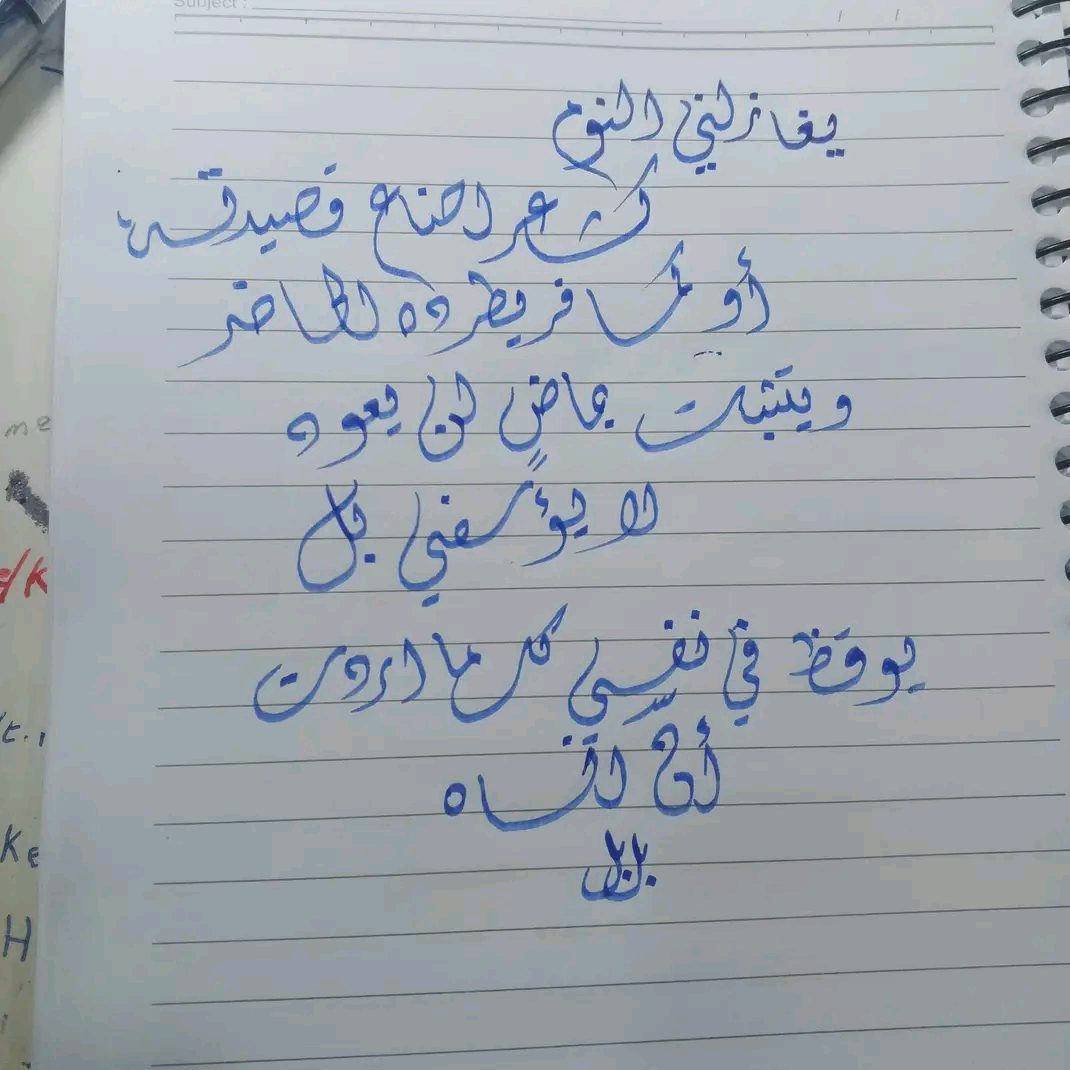 Subject :
يغازلني النوم
كشاعر اضاع قصيدته
أو كمسافر يطرده الحاضر
ويتشبث بماضٍ لن يعود
لا يؤسفني بل
يوقظ في نفسي كل ما اردت
أن انساه
بلابل
me
/K
Ke
H